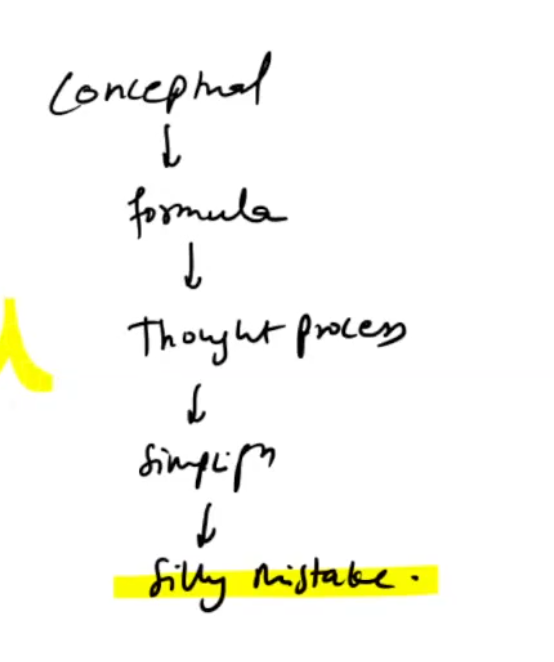 Conceptual
↓
formula
↓
Thought process
↓
Simplify
↓
Silly mistake.